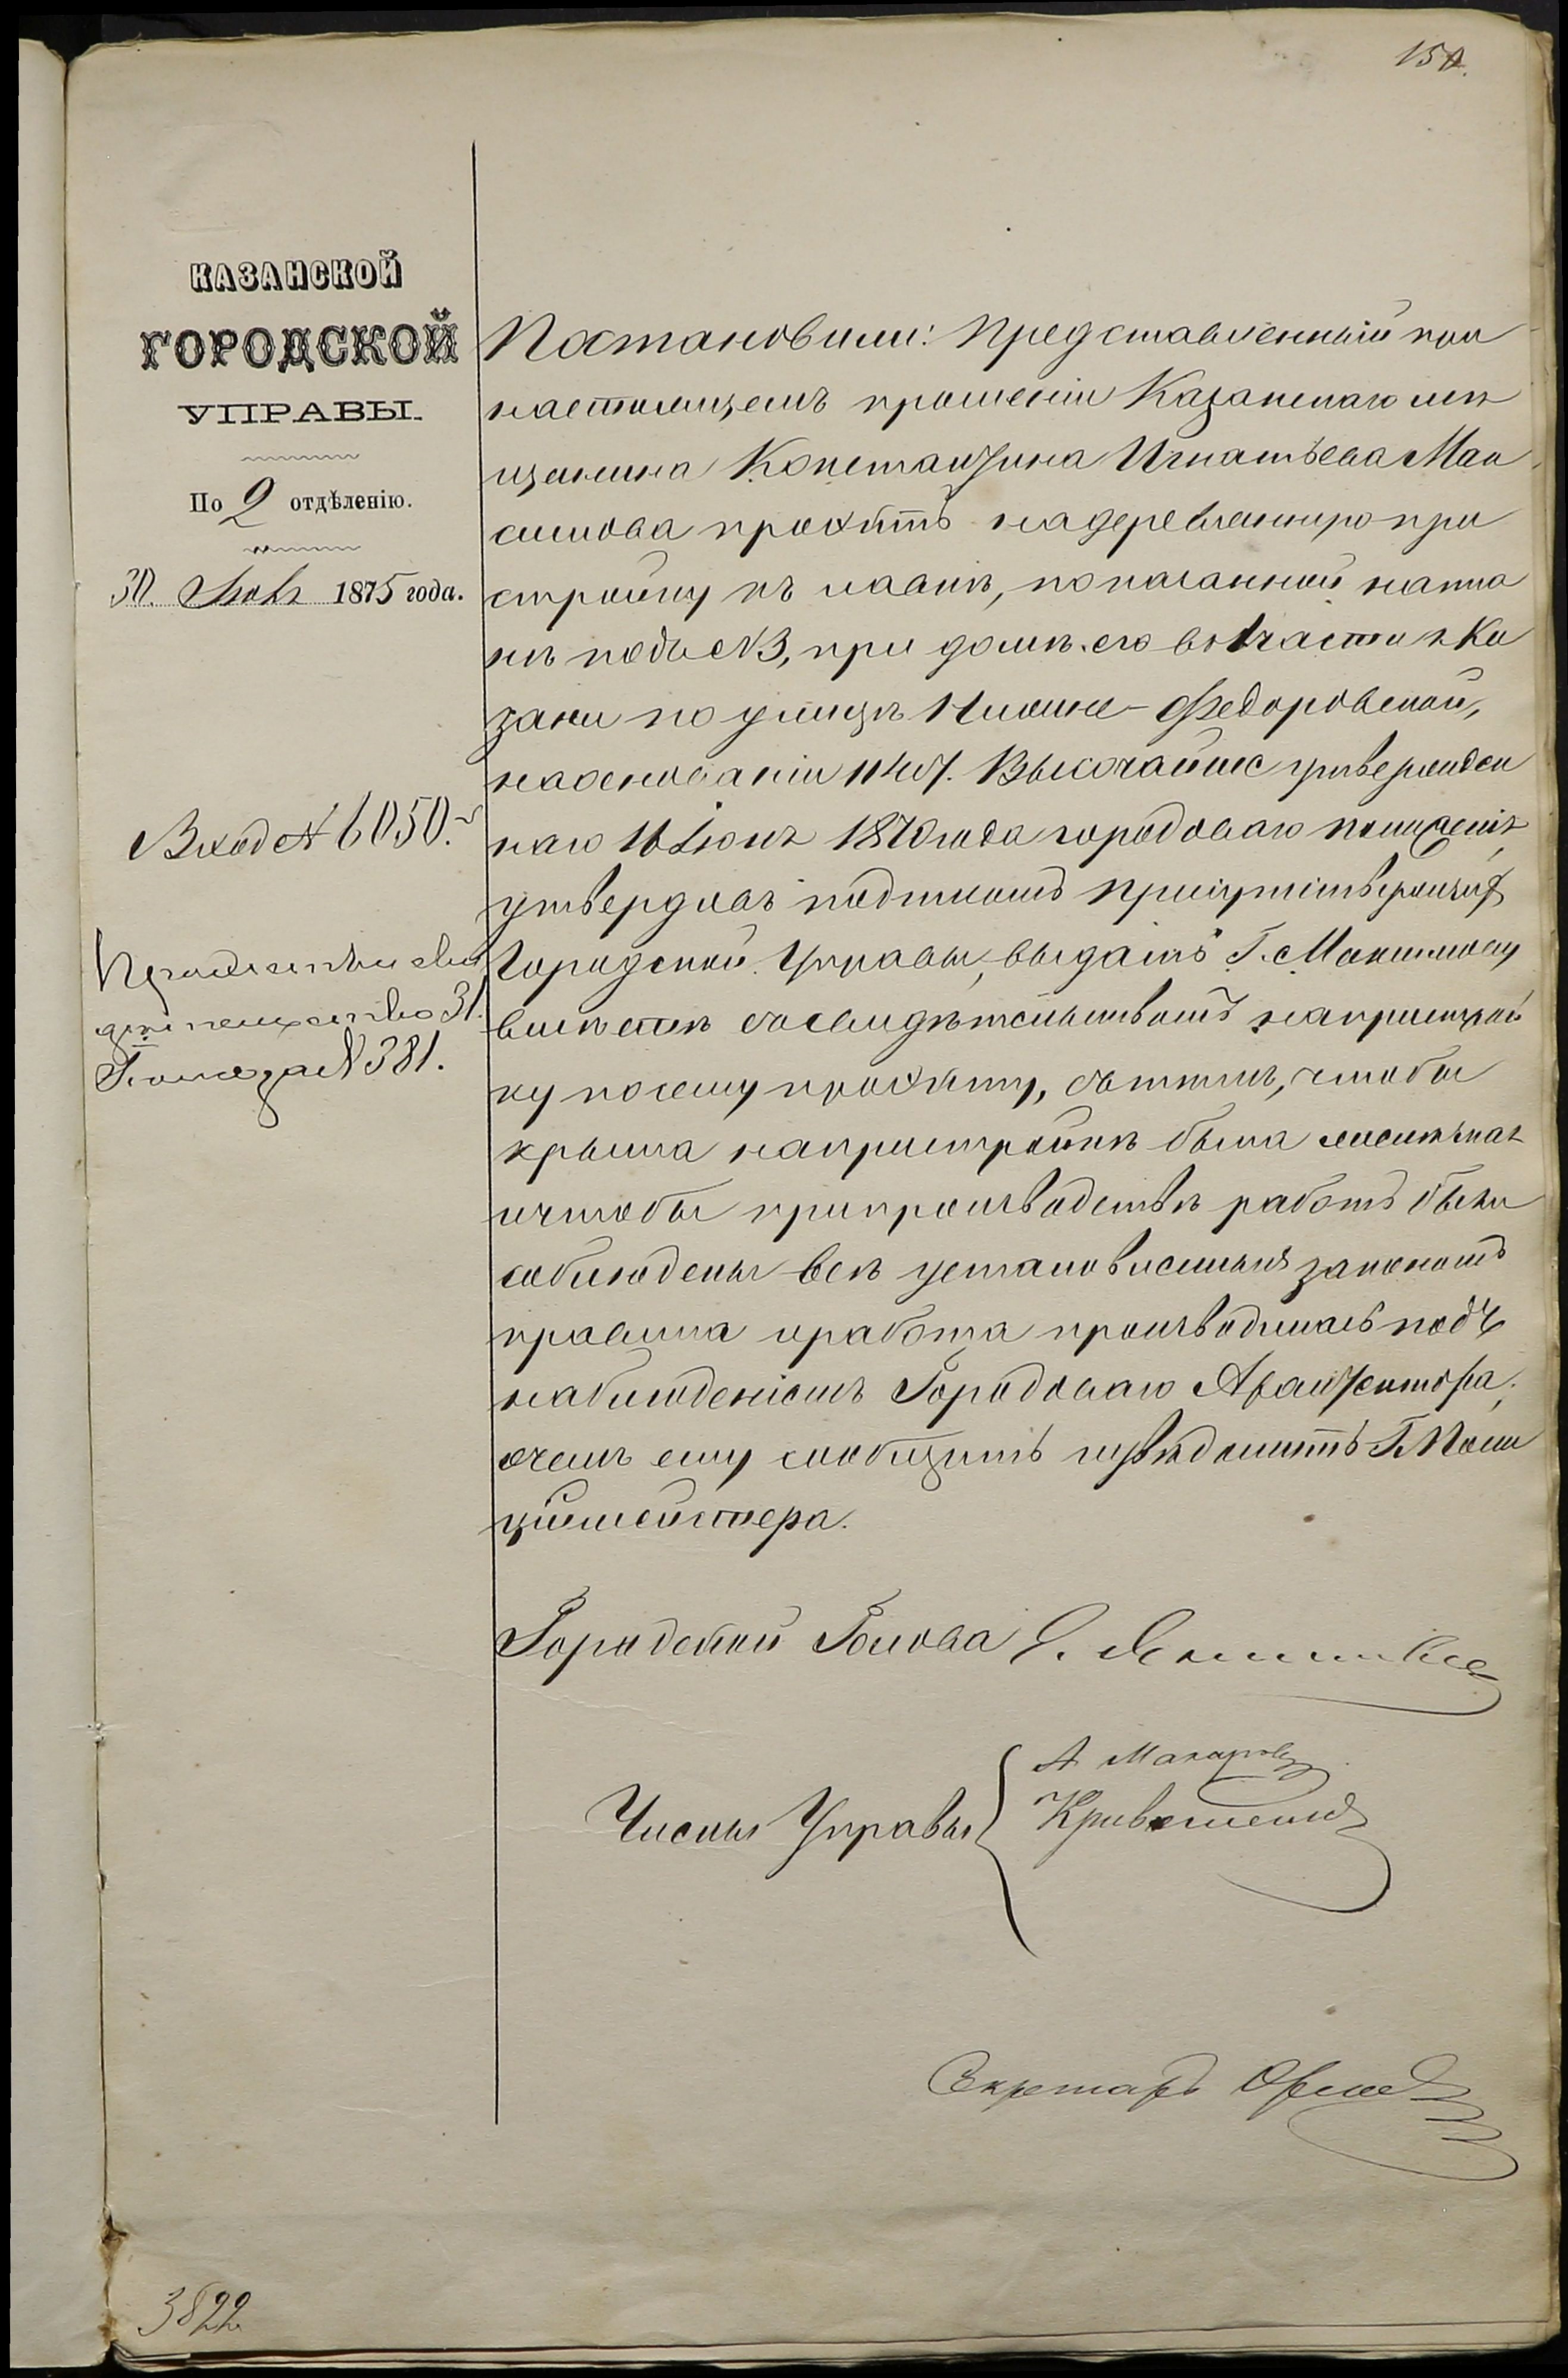 150.
КАЗАНСКОЙ
ГОРОДСКОЙ
УПРАВЫ.
По 2 отдѣленію.
30. Іюля 1875 года.
Вход № 6050.
31.
№ 381.
Постановили: Представленный при
настоящемъ прошеніи Казанскаго мѣ
щанина Константина Игнатьева Мак
симова проэктъ на деревянную при
стройку къ лавкѣ, показанной на пла
нѣ подъ № 3, при домѣ его въ части г. Ка
зани по улицѣ Нижне-Федоровской,
на основаніи 114 ст. Высочайше утвержден
наго 16 Іюня 1870 года городоваго положенія,
утвердивъ подписомъ присутствующихъ
Городской Управы, выдать Г. Максимову
вмѣстѣ со свидѣтельствомъ на пристрой
ку по сему проэкту, съ тѣмъ, чтобы
крыша на пристройкѣ была желѣзная
и чтобы при производствѣ работъ были
соблюдены всѣ установленныя закономъ
правила и работа производилась подъ
наблюденіемъ Городоваго Архитектора;
о чемъ ему сообщить и увѣдомить Г. Поли
ціймейстера.
Городской Голова
Члены Управы
А Макаровъ
Секретарь Орлов
3822